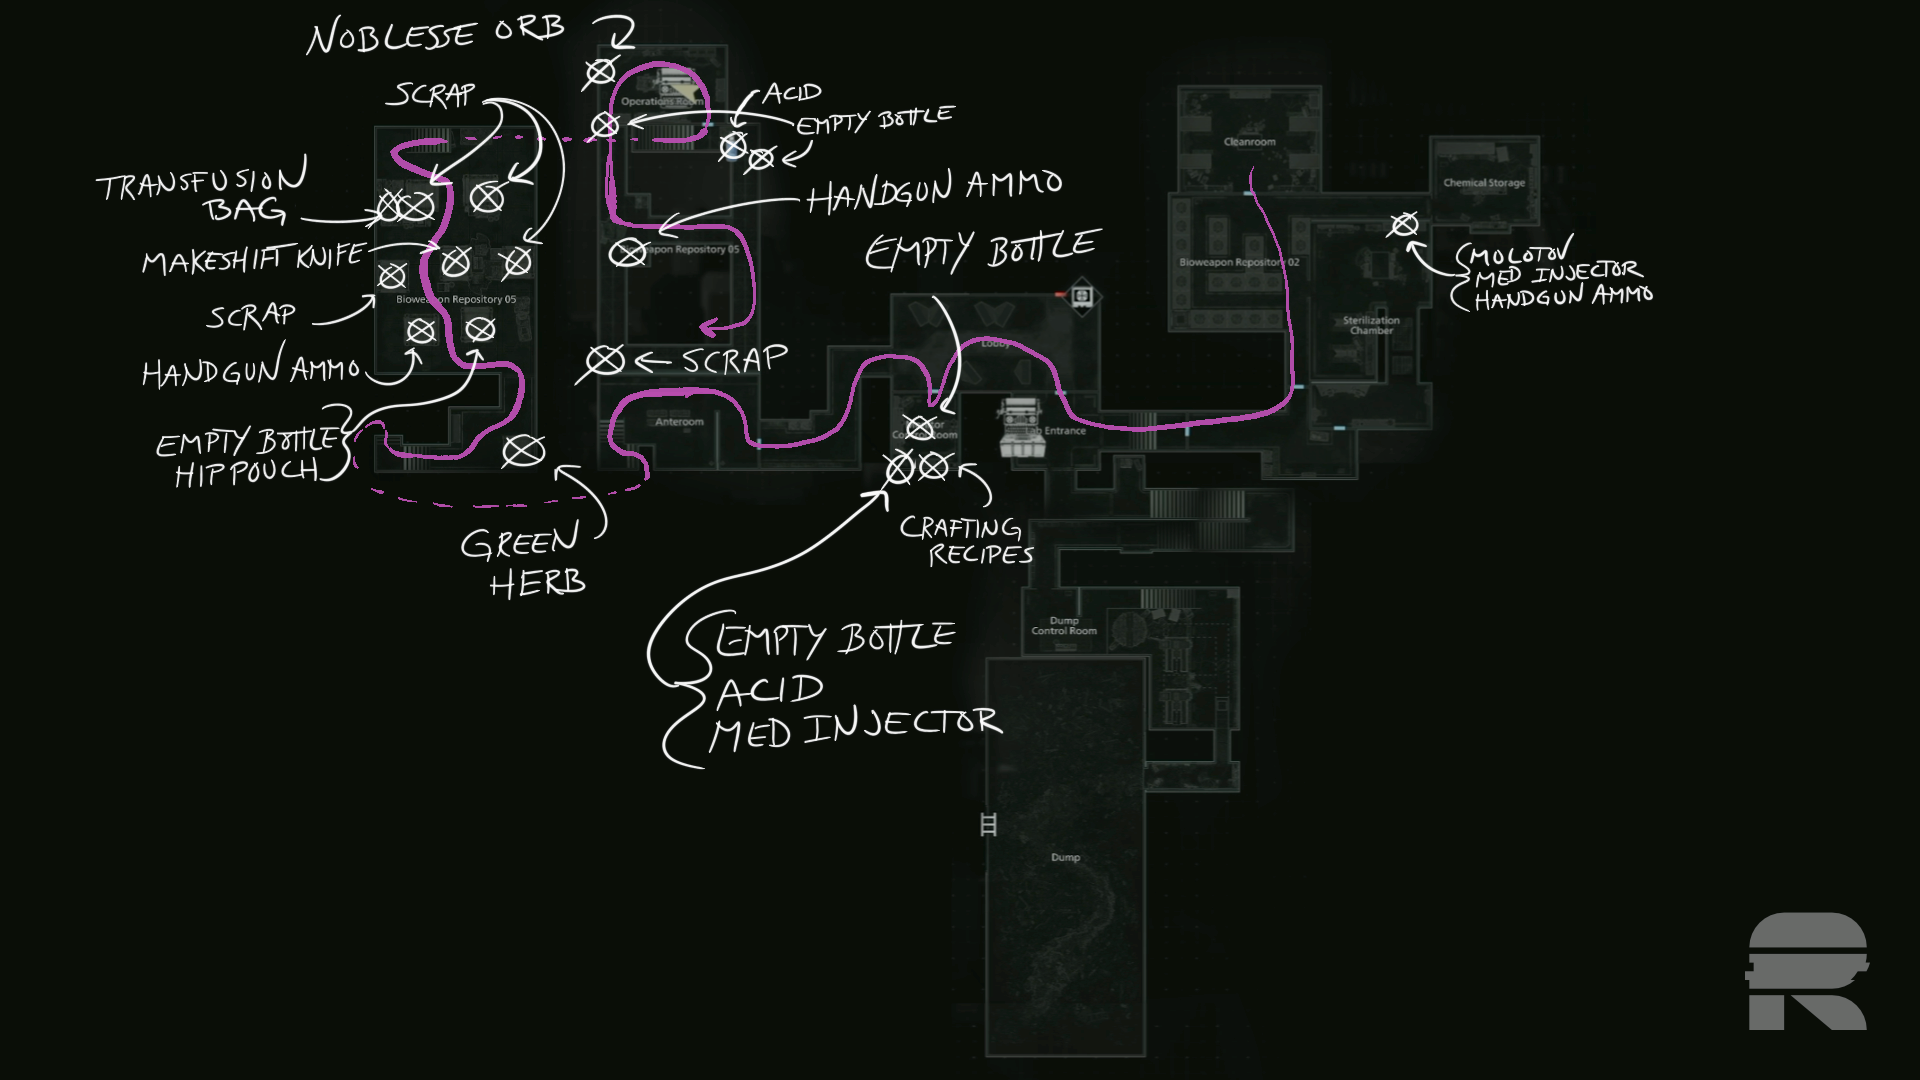 NOBLESSE ORB
SCRAP
ACID
EMPTY BOTTLE
Operations Room
TRANSFUSION
BAG
HANDGUN AMMO
MAKESHIFT KNIFE
Bioweapon Repository 05
Bioweapon Repository 05
SCRAP
HANDGUN AMMO
EMPTY BOTTLE
HIP POUCH
GREEN
HERB
SCRAP
Anteroom
EMPTY BOTTLE
Lobby
Control Room
Lab Entrance
CRAFTING
RECIPES
EMPTY BOTTLE
ACID
MED INJECTOR
Cleanroom
Chemical Storage
Bioweapon Repository 02
Sterilization
Chamber
MOLOTOV
MED INJECTOR
HANDGUN AMMO
Dump
Control Room
Dump
R